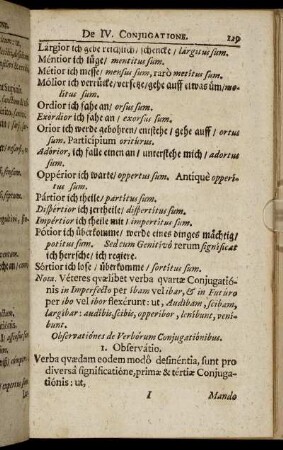 De IV. Conjugatione. 129
Largior ich gebe reichlich/ schencke/ largitus sum.
Méntior ich lüge/ mentitus sum.
Métior ich messe/ mensus sum, rarò metitus sum.
Mólior ich verrücke/ versetze/ gehe auff etwas üm/mo-
litus sum.
Ordior ich fahe an/ orsus sum.
Exordior ich fahe an/ exorsus sum.
Orior ich werde gebohren/ entstehe/ gehe auff/ ortus
sum. Participium oritúrus.
Adórior, ich falle einen an/ unterstehe mich/ adortus
sum.
Oppérior ich warte/ oppertus sum. Antiquè opperi-
tus sum.
Pártior ich theile/ partitus sum.
Dispértior ich zertheile/ dispertitus sum.
Impértior ich theile mit/ impertitus sum.
Pótior ich überkomme/ werde eines dinges mächtig/
potitus sum. Sed cum Genitivô rerum significat
ich herrsche/ ich regiere.
Sórtior ich lose/ überkomme/ sortitus sum.
Nota. Véteres quælibet verba quartæ Conjugatió-
nis in Imperfecto per ibam vel ibar, & in Futuro
per ibo vel ibor flexérunt: ut, Audibam, scibam,
largibar: audibis, scibis, opperibor, lenibunt, veni-
bunt.
Observatiónes de Verbórum Conjugatiónibus.
1. Observátio.
Verba quædam eodem modô desinéntia, sunt pro
diversâ significatióne, primæ & tértiæ Conjuga-
tiónis: ut,
I Mando